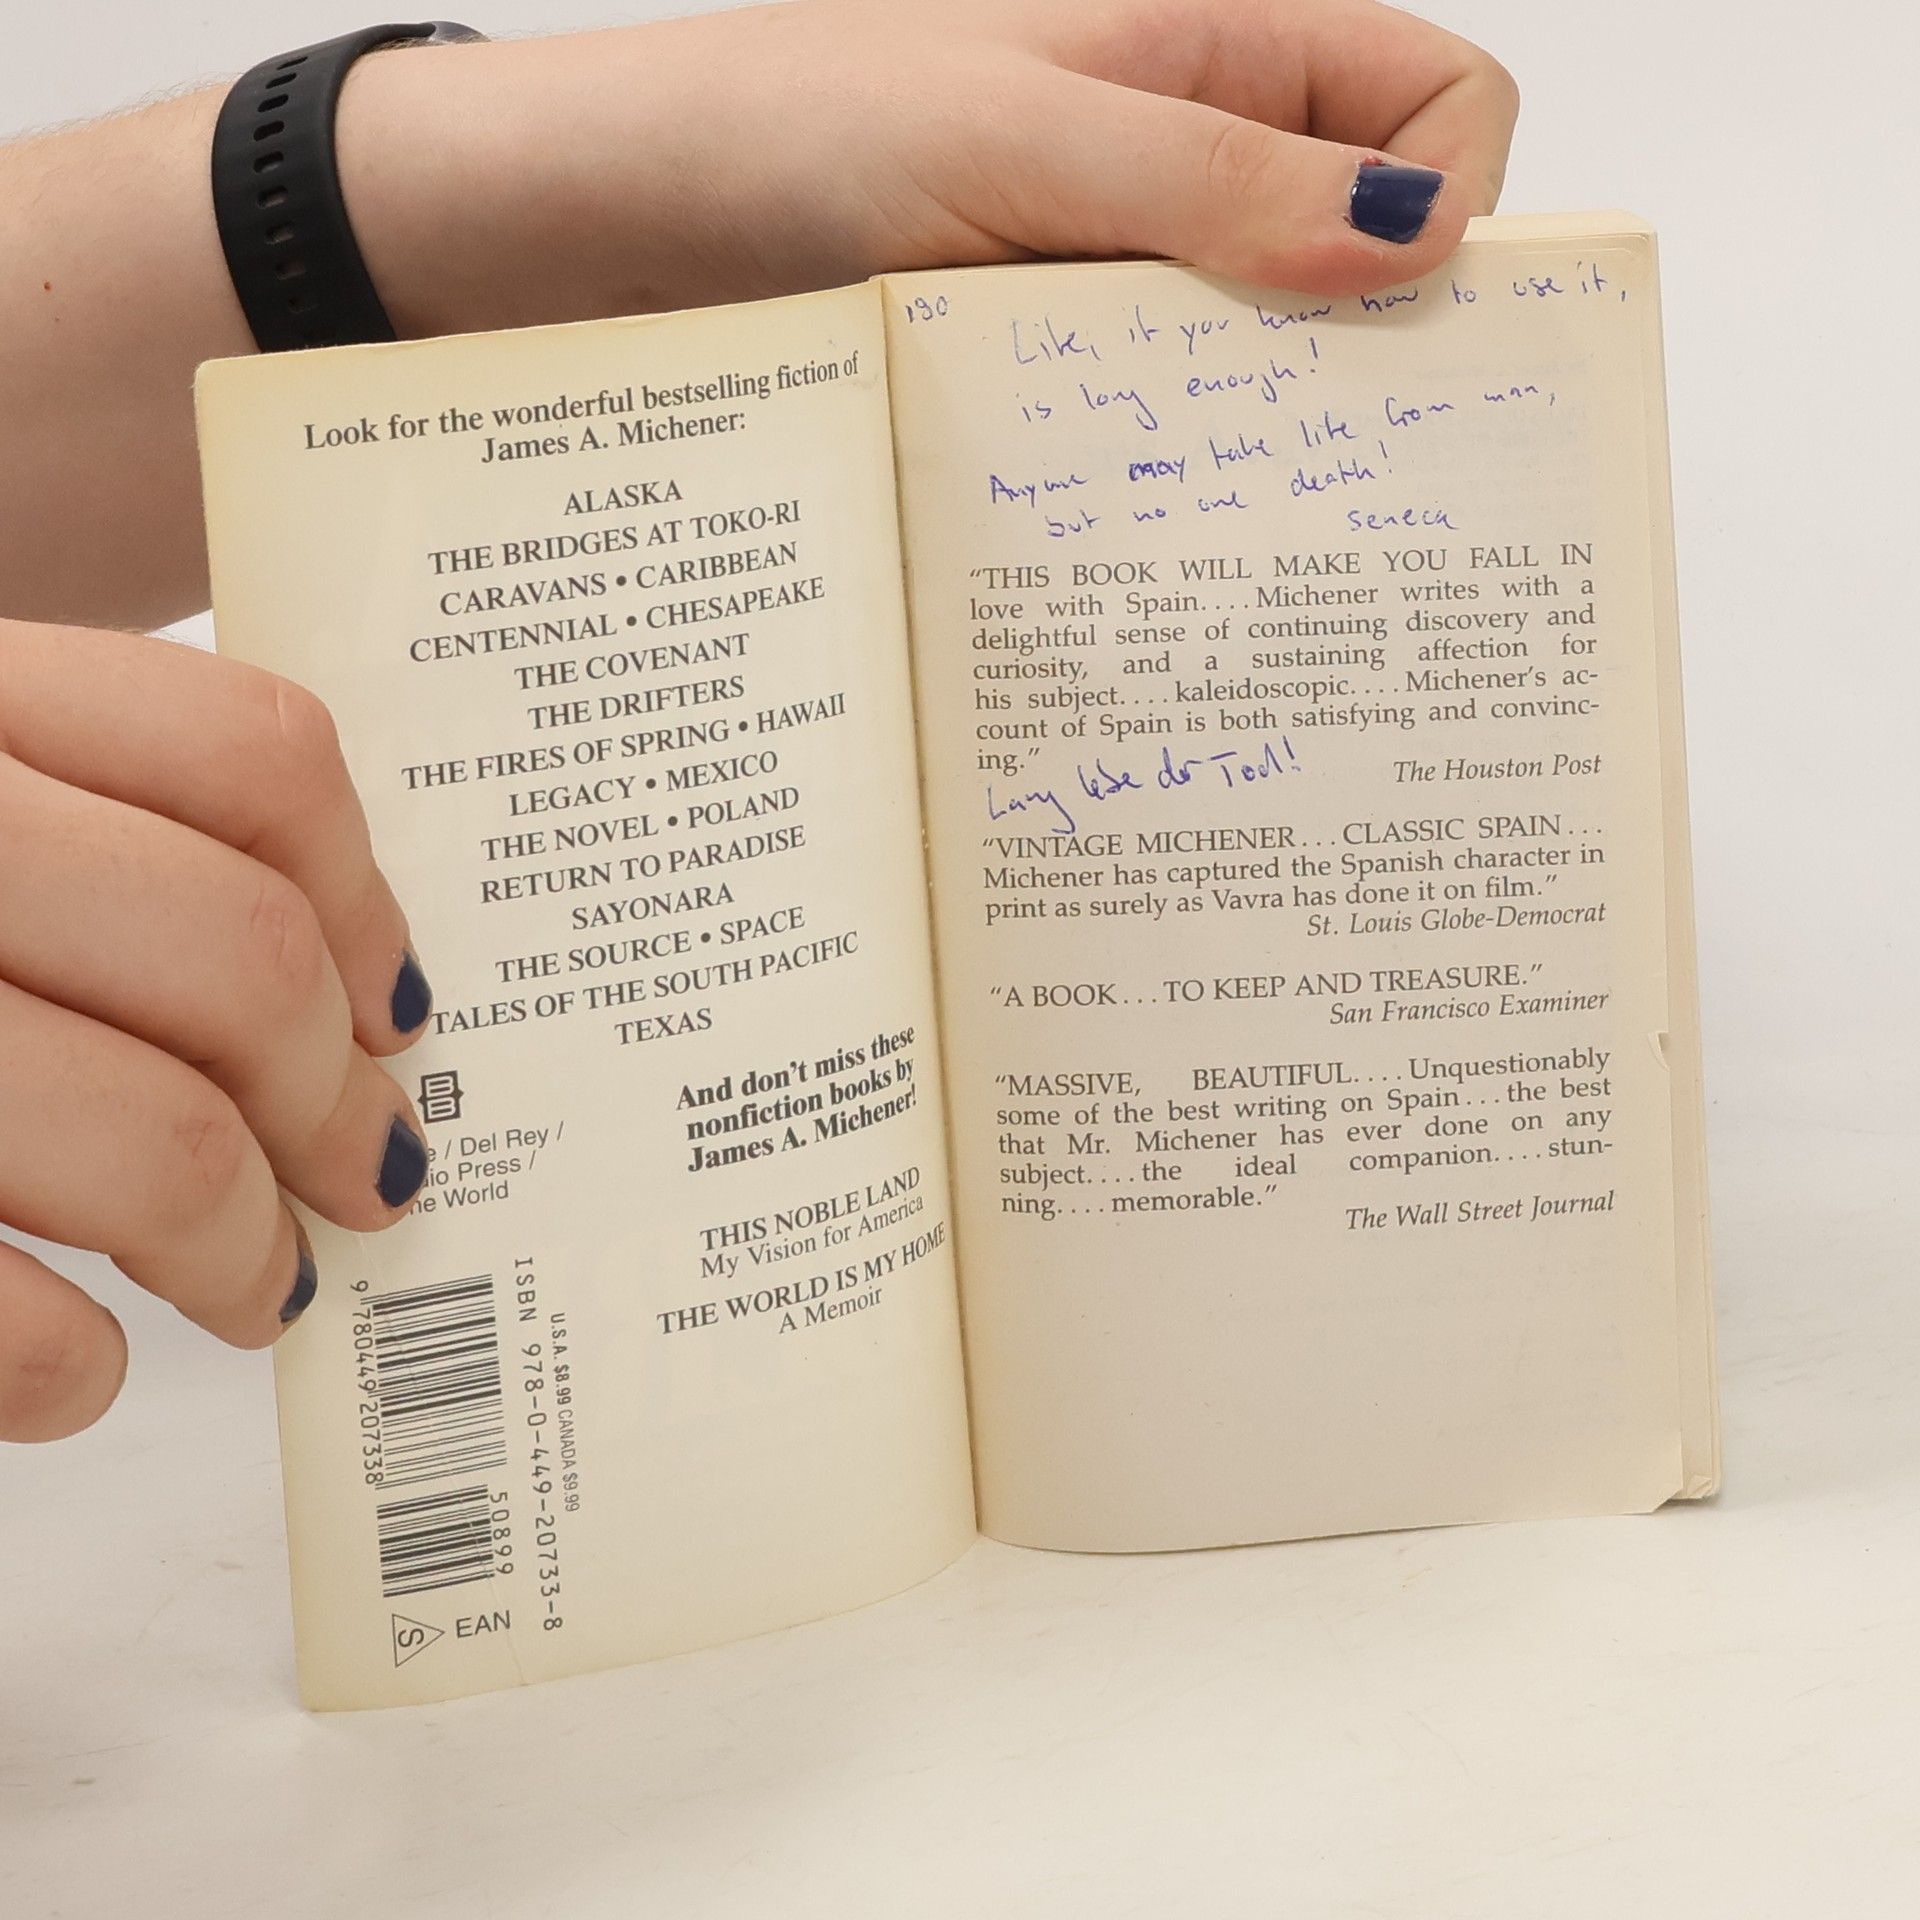 Look for the wonderful bestselling fiction of
James A. Michener:
ALASKA
THE BRIDGES AT TOKO-RI
CARAVANS • CARIBBEAN
CENTENNIAL • CHESAPEAKE
THE COVENANT
THE DRIFTERS
THE FIRES OF SPRING • HAWAII
LEGACY • MEXICO
THE NOVEL • POLAND
RETURN TO PARADISE
SAYONARA
THE SOURCE • SPACE
TALES OF THE SOUTH PACIFIC
TEXAS
And don't miss these
nonfiction books by
James A. Michener!
THIS NOBLE LAND
My Vision for America
THE WORLD IS MY HOME
A Memoir
/ Del Rey /
Press /
World
9 780449 207338
50899
ISBN 978-0-449-20733-8
U.S.A. $8.99 CANADA $9.99
S EAN
190
Life, if you know how to use it,
is long enough!
Anyone may take life from man,
but no one death!
Seneca
“THIS BOOK WILL MAKE YOU FALL IN
love with Spain. . . . Michener writes with a
delightful sense of continuing discovery and
curiosity, and a sustaining affection for
his subject. . . . kaleidoscopic. . . . Michener's ac-
count of Spain is both satisfying and convinc-
ing.”
The Houston Post
Lang lebe der Tod!
“VINTAGE MICHENER . . . CLASSIC SPAIN . . .
Michener has captured the Spanish character in
print as surely as Vavra has done it on film.”
St. Louis Globe-Democrat
“A BOOK . . . TO KEEP AND TREASURE.”
San Francisco Examiner
“MASSIVE, BEAUTIFUL. . . . Unquestionably
some of the best writing on Spain . . . the best
that Mr. Michener has ever done on any
subject. . . . the ideal companion. . . . stun-
ning. . . . memorable.”
The Wall Street Journal